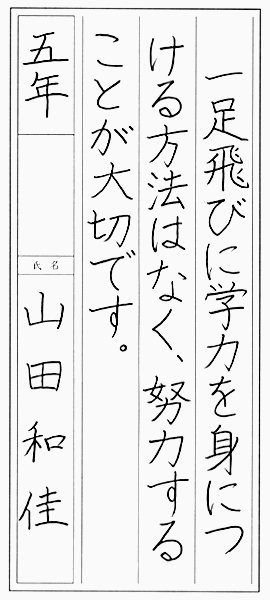 一足飛びに学力を身につ
ける方法はなく、努力する
ことが大切です。
五年
氏名
山田和佳